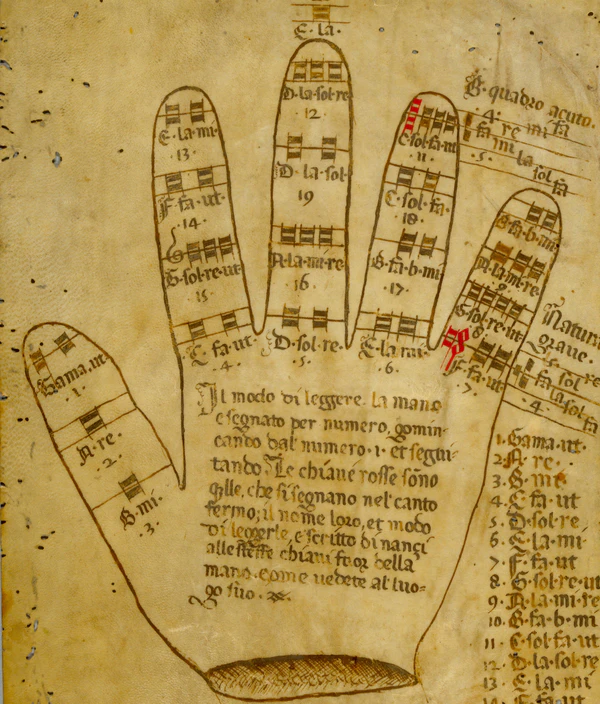 E. la.
D. la. sol. re
12
D. la. sol.
19
A. la. mi. re.
16.
D. sol. re
.5.
E. la. mi.
13.
F. fa. ut
.14.
G. sol. re. ut
15
C. fa. ut
.4.
C. sol. fa. ut
11
C. sol. fa.
18.
B. fa. b. mi
.17.
E. la. mi.
.6.
B. fa. b. mi
A. la. mi. re.
9
G. sol. re. ut
8
F. fa. ut
.7.
B. quadro acuto.
.4.
fa re mi fa
mi la sol
.5. fa
Natura
grave.
sol re
fa la sol
.4. fa
Gama. ut.
.1.
A. re.
.2.
B. mi.
.3.
Il modo di leggere la mano
e segnato per numero, comin-
cando dal numero .1. et segui-
tando. Le chiave rosse sono
qlle, che si segnano nel canto
fermo; il nome loro, et modo
di leggerle, e scritto dinanci
alle stesse chiavi for della
mano. come vedete al luo-
go suo.
1. Gama. ut.
2. A. re.
3. B. mi
4. C. fa. ut
5. D. sol. re
6. E. la. mi
7. F. fa. ut
8. G. sol. re. ut
9. A. la. mi. re
10. B. fa. b. mi
11. C. sol. fa. ut
12. D. la. sol. re
13. E. la. mi
14. F. fa. ut